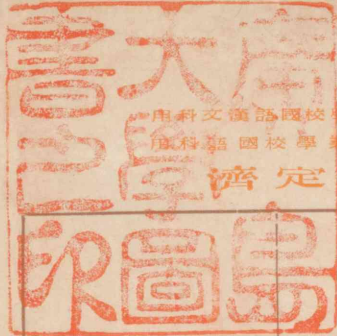 廣島
大學圖
書之印
用科文漢語國校學
用科語國校學
濟定